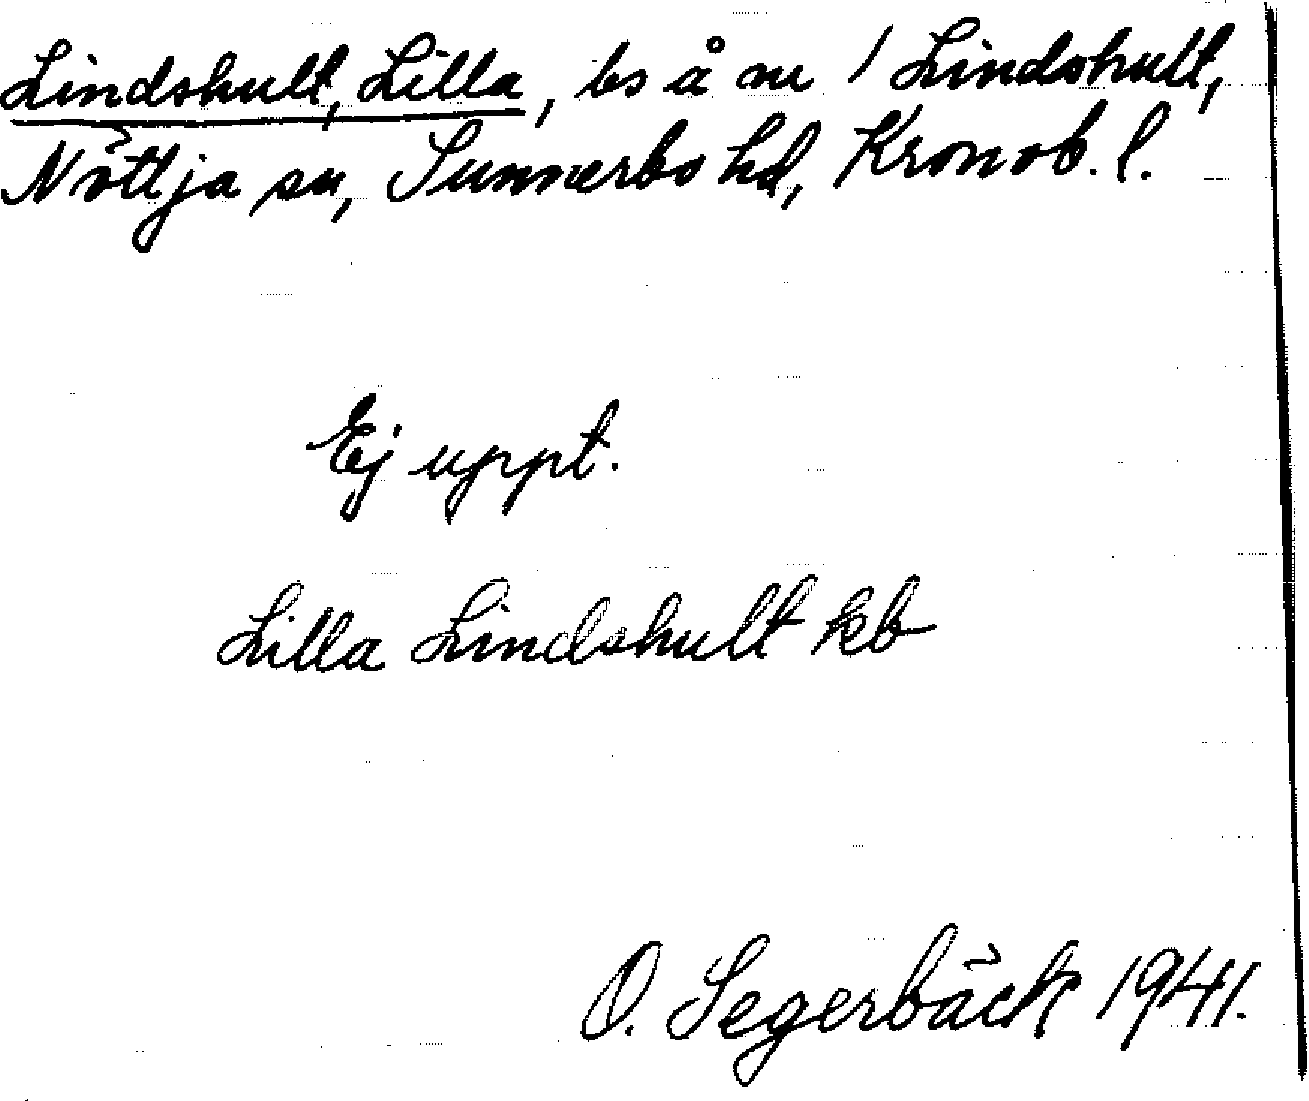 Lindshult, Lilla, bs å nr 1 Lindshult,
Nöttja sn, Sunnerbo hd, Kronob. l.
Ej uppt.
Lilla Lindshult kb
O. Segerbäck 1941.